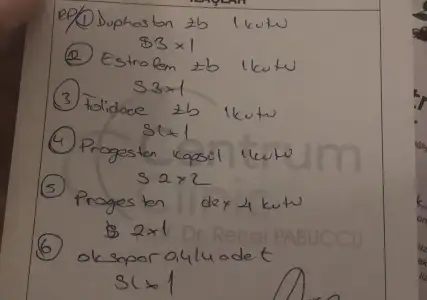 RP/ ① Duphaston tb 1 kutu
S 3x1
② Estrofem tb 1 kutu
S 3x1
③ Folidoce tb 1 kutu
S 1x1
④ Progestan kapsül 1 kutu
S 2x2
⑤ Progestan dex 4 kutu
S 2x1
⑥ oksapar 0,4 adet
S 1x1
Centrum
Clinic
Dr. Renai PABUCCU